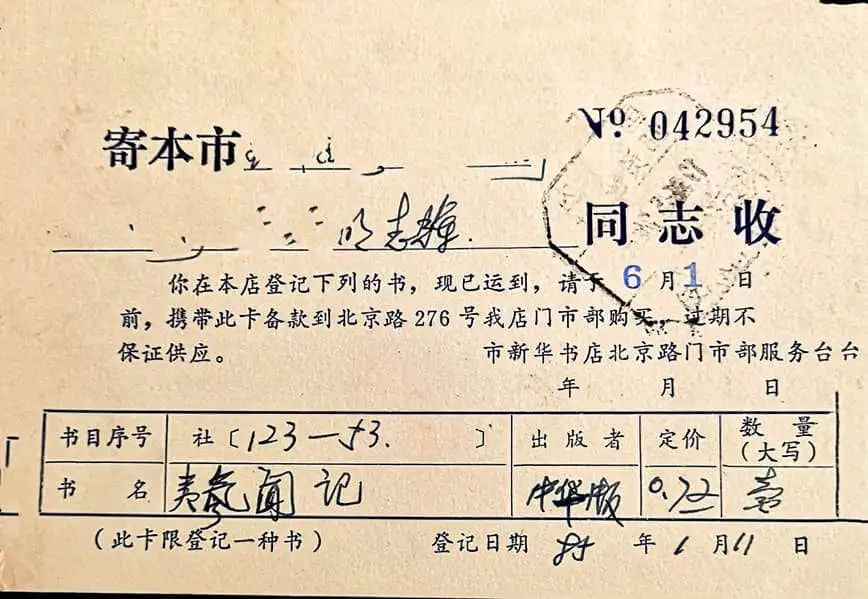 No. 042954
寄本市
志辉 同志收
你在本店登记下列的书，现已运到，请于 6 月 1 日
前，携带此卡备款到北京路 276 号我店门市部购买，过期不
保证供应。 市新华书店北京路门市部服务台台
年 月 日
书目序号 社〔123—53. 〕 出版者 定价 数量（大写）
书名 夷氛闻记 中华版 0.72 壹
（此卡限登记一种书） 登记日期 85 年 1 月 11 日